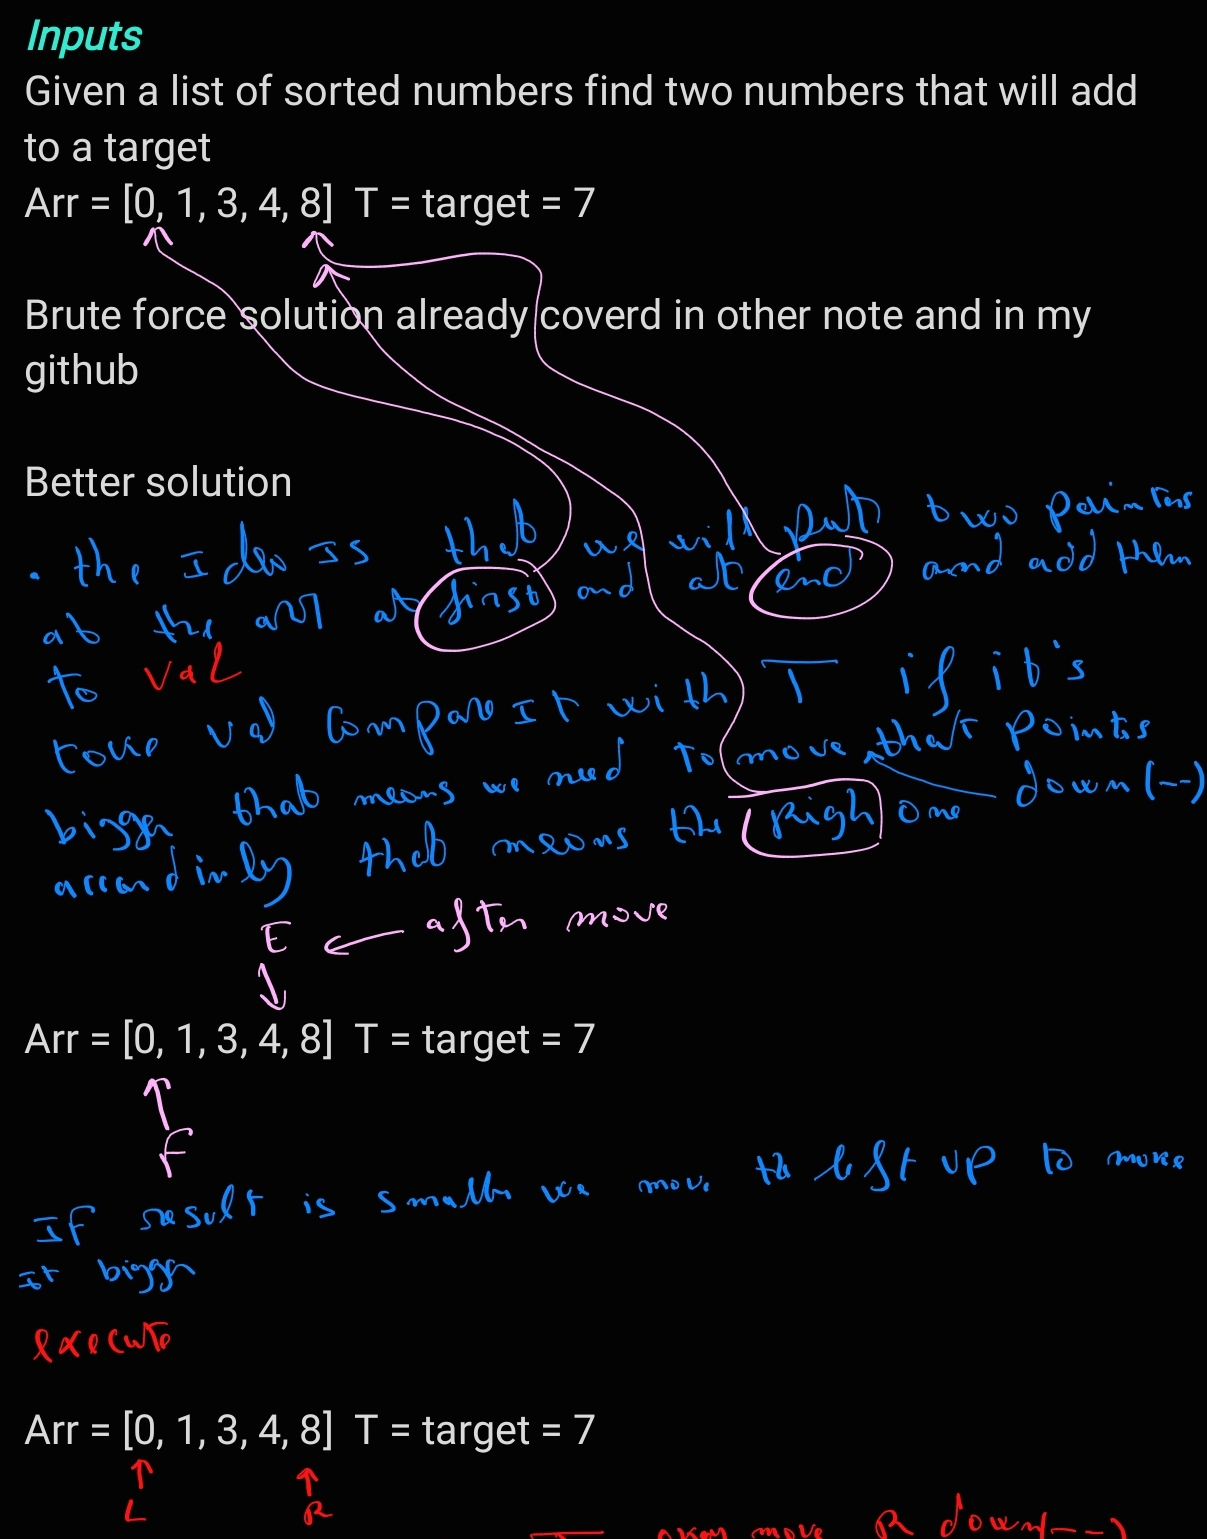 Inputs
Given a list of sorted numbers find two numbers that will add
to a target
Arr = [0, 1, 3, 4, 8] T = target = 7
Brute force solution already coverd in other note and in my
github
Better solution
. the Idea Is that we will put two pointers
at the arr at first and at end and add them
to val
take val Compare It with T if it's
bigger that means we need to move that points down (--)
accordinly that means the Righ one
E ← after move
Arr = [0, 1, 3, 4, 8] T = target = 7
F
If result is smaller we move the left up to move
It bigger
execute
Arr = [0, 1, 3, 4, 8] T = target = 7
L R
move R down(--)